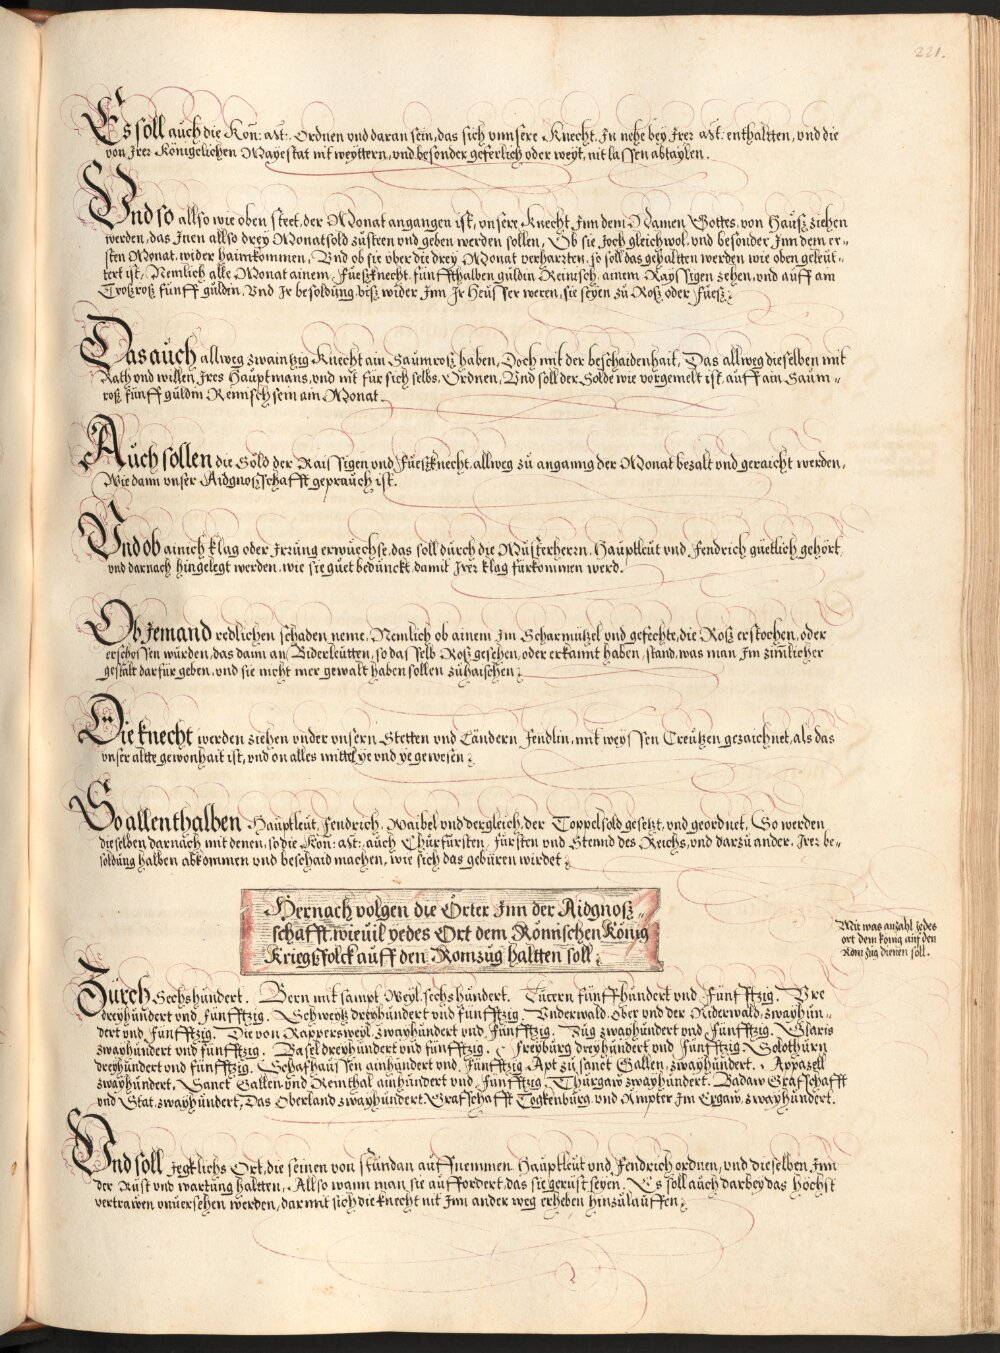 221.
Es soll auch die Kön: Mt: Ordnen vnd daran sein, das sich vnnsere Knecht, In nehe bey Irer Mt: enthaltten, vnd die
von Irer Königelichen Mayestat nit weyttern, vnd besonder geferlich oder weyt, nit lassen abtaylen.
Vnd so allso wie oben steet, der Monat angangen ist, vnsere Knecht, Inn dem Namen Gottes, von Hauß ziehen
werden, das Inen allso drey Monatsold züsteen vnd geben werden sollen, Ob sie Joch gleichwol, vnd besonder Inn dem er-
sten Monat, wider haimkommen, Vnd ob sie vber die drey Monat verharrten, so soll das gehaltten werden wie oben geleüt-
tert ist, Nemlich alle Monat ainem Fueßknecht, fünffthalben guldin Reinisch, ainem Rayssigen zehen, vnd auff ain
Troßroß fünff guldin, Vnd Ir besoldung, biß wider Inn Ir Heusser weren, sie seyen zü Roß oder Fueß.
Das auch allweg zwaintzig Knecht ain Saumroß haben, Doch mit der beschaidenhait, Das allweg dieselben mit
Rath vnd willen Ires Hauptmans, vnd nit für sich selbs, Ordnen, Vnd soll der Solde wie vorgemelt ist, auff ain Saum-
roß fünff guldin Reinisch sein am Monat.
Auch sollen die Söld der Raissigen vnd Fueßknecht, allweg zü anganng der Monat bezalt vnd geraicht werden,
Wie dann vnser Aidgnoßschafft geprauch ist.
Vnd ob ainich klag oder Irrung erwüchse, das soll durch die Musterherrn, Hauptleüt vnd Fendrich güetlich gehört,
vnd darnach hingelegt werden, wie sie güet bedunckt, damit Irer klag fürkommen werd.
Ob Jemand redlichen schaden neme, Nemlich ob ainem Im Scharmützel vnd gefechte, die Roß erstochen, oder
erschossen würden, das dann an Biderleütten, so dasselb Roß gesehen, oder erkannt haben, stand, was man Im zimlicher
gestalt darfür geben, vnd sie nicht mer gewalt haben sollen zü haischen.
Die knecht werden ziehen vnder vnsern Stetten vnd Ländern Fendlin, mit weyssen Creützen gezaichnet, als das
vnser altte gewonhait ist, vnd on alles mittel ye vnd ye gewesen.
So allenthalben Hauptleüt, Fendrich, Waibel vnd dergleich, der Toppelsold gesetzt, vnd geordnet, So werden
dieselben darnach mit denen, so die Kön: Mt:, auch Churfürsten, Fürsten vnd Stennd des Reichs, vnd darzü ander, Irer be-
soldung halben abkommen vnd beschaid machen, wie sich das gebüren wirdet.
Hernach volgen die Örter Inn der Aidgnoß-
schafft, wieuil yedes Ort dem Römischen König
Kriegßfolck auff den Romzug haltten soll.
Mit was anzahl jedes
ort dem könig auf den
Rom zug dienen soll.
Zürch Sechshundert. Bern mit sampt Weyl, sechshundert. Lucern fünffhundert vnd Fünfftzig. Vre
dreyhundert vnd fünfftzig. Schweytz dreyhundert vnd fünfftzig. Vnderwald, Ober vnd der Niderwald, zwayhun-
dert vnd Fünfftzig. Die von Rappersweyl, zwayhundert vnd Fünfftzig. Zug zwayhundert vnd Fünfftzig. Glaris
zwayhundert vnd fünfftzig. Basel dreyhundert vnd fünfftzig. Freyburg dreyhundert vnd Fünfftzig. Solothurn
dreyhundert vnd fünfftzig. Schafhaussen ainhundert vnd Fünfftzig. Apt zü sanct Gallen, zwayhundert. Appazell
zwayhundert. Sanct Gallen vnd Reinthal ainhundert vnd Fünfftzig. Thurgaw zwayhundert. Badaw Grafschafft
vnd Stat, zwayhundert, Das Oberland zwayhundert. Grafschafft Toggenburg, vnd Ampter Im Ergaw, zwayhundert.
Vnd soll yegklichs Ort, die seinen von stundan auffnemmen, Hauptleüt vnd Fendrich ordnen, vnd dieselben, Inn
der Rust vnd wartung haltten, Allso wann man sie auffordert, das sie gerüst seyen. Es soll auch darbey das höchst
vertrawen vnuersehen werden, darmit sich die knecht nit Inn ander weg erheben hinzülauffen.